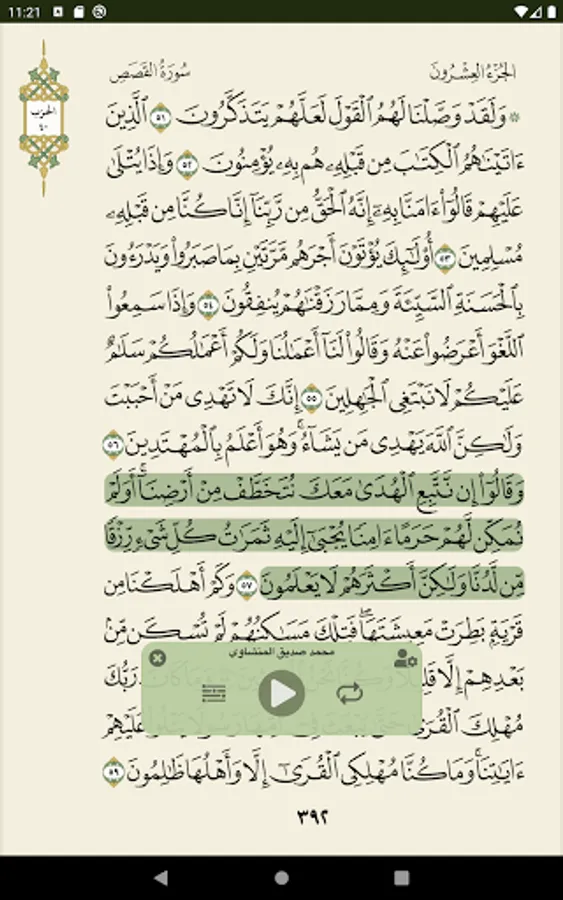 11:21
الجُزْءُ العِشْرُونَ
سُورَةُ القَصَصِ
الحزب
٤٠
۞ وَلَقَدْ وَصَّلْنَا لَهُمُ ٱلْقَوْلَ لَعَلَّهُمْ يَتَذَكَّرُونَ ٥١ ٱلَّذِينَ
ءَاتَيْنَٰهُمُ ٱلْكِتَٰبَ مِن قَبْلِهِۦ هُم بِهِۦ يُؤْمِنُونَ ٥٢ وَإِذَا يُتْلَىٰ
عَلَيْهِمْ قَالُوٓا۟ ءَامَنَّا بِهِۦٓ إِنَّهُ ٱلْحَقُّ مِن رَّبِّنَآ إِنَّا كُنَّا مِن قَبْلِهِۦ
مُسْلِمِينَ ٥٣ أُو۟لَٰٓئِكَ يُؤْتَوْنَ أَجْرَهُم مَّرَّتَيْنِ بِمَا صَبَرُوا۟ وَيَدْرَءُونَ
بِٱلْحَسَنَةِ ٱلسَّيِّئَةَ وَمِمَّا رَزَقْنَٰهُمْ يُنفِقُونَ ٥٤ وَإِذَا سَمِعُوا۟
ٱللَّغْوَ أَعْرَضُوا۟ عَنْهُ وَقَالُوا۟ لَنَآ أَعْمَٰلُنَا وَلَكُمْ أَعْمَٰلُكُمْ سَلَٰمٌ
عَلَيْكُمْ لَا نَبْتَغِى ٱلْجَٰهِلِينَ ٥٥ إِنَّكَ لَا تَهْدِى مَنْ أَحْبَبْتَ
وَلَٰكِنَّ ٱللَّهَ يَهْدِى مَن يَشَآءُ ۚ وَهُوَ أَعْلَمُ بِٱلْمُهْتَدِينَ ٥٦
وَقَالُوٓا۟ إِن نَّتَّبِعِ ٱلْهُدَىٰ مَعَكَ نُتَخَطَّفْ مِنْ أَرْضِنَآ ۚ أَوَلَمْ
نُمَكِّن لَّهُمْ حَرَمًا ءَامِنًا يُجْبَىٰٓ إِلَيْهِ ثَمَرَٰتُ كُلِّ شَىْءٍ رِّزْقًا
مِّن لَّدُنَّا وَلَٰكِنَّ أَكْثَرَهُمْ لَا يَعْلَمُونَ ٥٧ وَكَمْ أَهْلَكْنَا مِن
قَرْيَةٍۭ بَطِرَتْ مَعِيشَتَهَا ۖ فَتِلْكَ مَسَٰكِنُهُمْ لَمْ تُسْكَن مِّنۢ
محمد صديق المنشاوي
بَعْدِهِمْ إِلَّا رَبُّكَ
مُهْلِكَ ٱلْقُرَىٰ عَلَيْهِمْ
ءَايَٰتِنَا ۚ وَمَا كُنَّا مُهْلِكِى ٱلْقُرَىٰٓ إِلَّا وَأَهْلُهَا ظَٰلِمُونَ ٥٩
٣٩٢